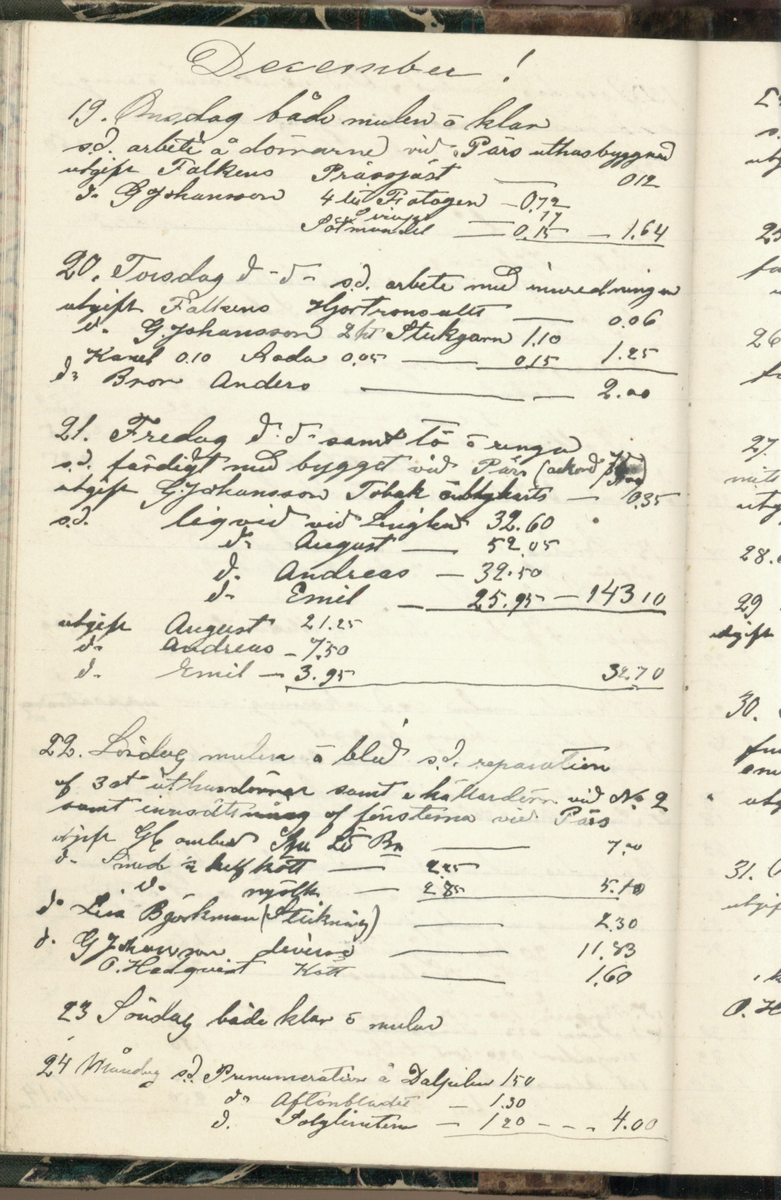 December !
19. Onsdag både mulen o klar
s.d. arbete å dörrarne vid Pärs uthusbyggnad
utgift Falkens Prässjäst — 0 12
d- G Johansson 4 lit Fotogen - 0.72
Sirapp — 77
Sötmandel — 0.15 — 1.64
20. Torsdag d-d- s.d. arbete med inredningen
utgift Falkens Hjortronsallt — 0.06
d- G. Johansson 2 ht Stickgarn 1.10
Kanel 0.10 Soda 0.05 — 0.15 1.25
d- Bror Anders — 2.00
21. Fredag d-d- samt tö o ringa
s.d. färdigt med bygget vid Pärs (ackord
utgift G. Johansson Tobak — 0.35
s.d. liqvid vid 32.60
d- August — 52.05
d- Andreas — 32.50
d- Emil — 25.95 — 143 10
utgift August 21.25
d- Andreas - 7.50
d- Emil — 3.95 32.70
22. Lördag mulen o blid s.d. reparation
af 3 st uthusdörrar samt källardörrn vid No 2
samt innsättning af fönsterna vid Pärs
utgift — 7.00
d- Smed kalfkött — 2.25
d- mjölk — 2.85 5.10
d- Lisa Björkman (Stickning) — 2.30
d- G Johansson diverse — 11.83
O. Hedqvist Kött — 1.60
23 Söndag både klar o mulen
24 Måndag s.d. Prenumeration å Dalpilen 1 50
d- Aftonbladet — 1.30
d. — 1 20 - - - 4.00